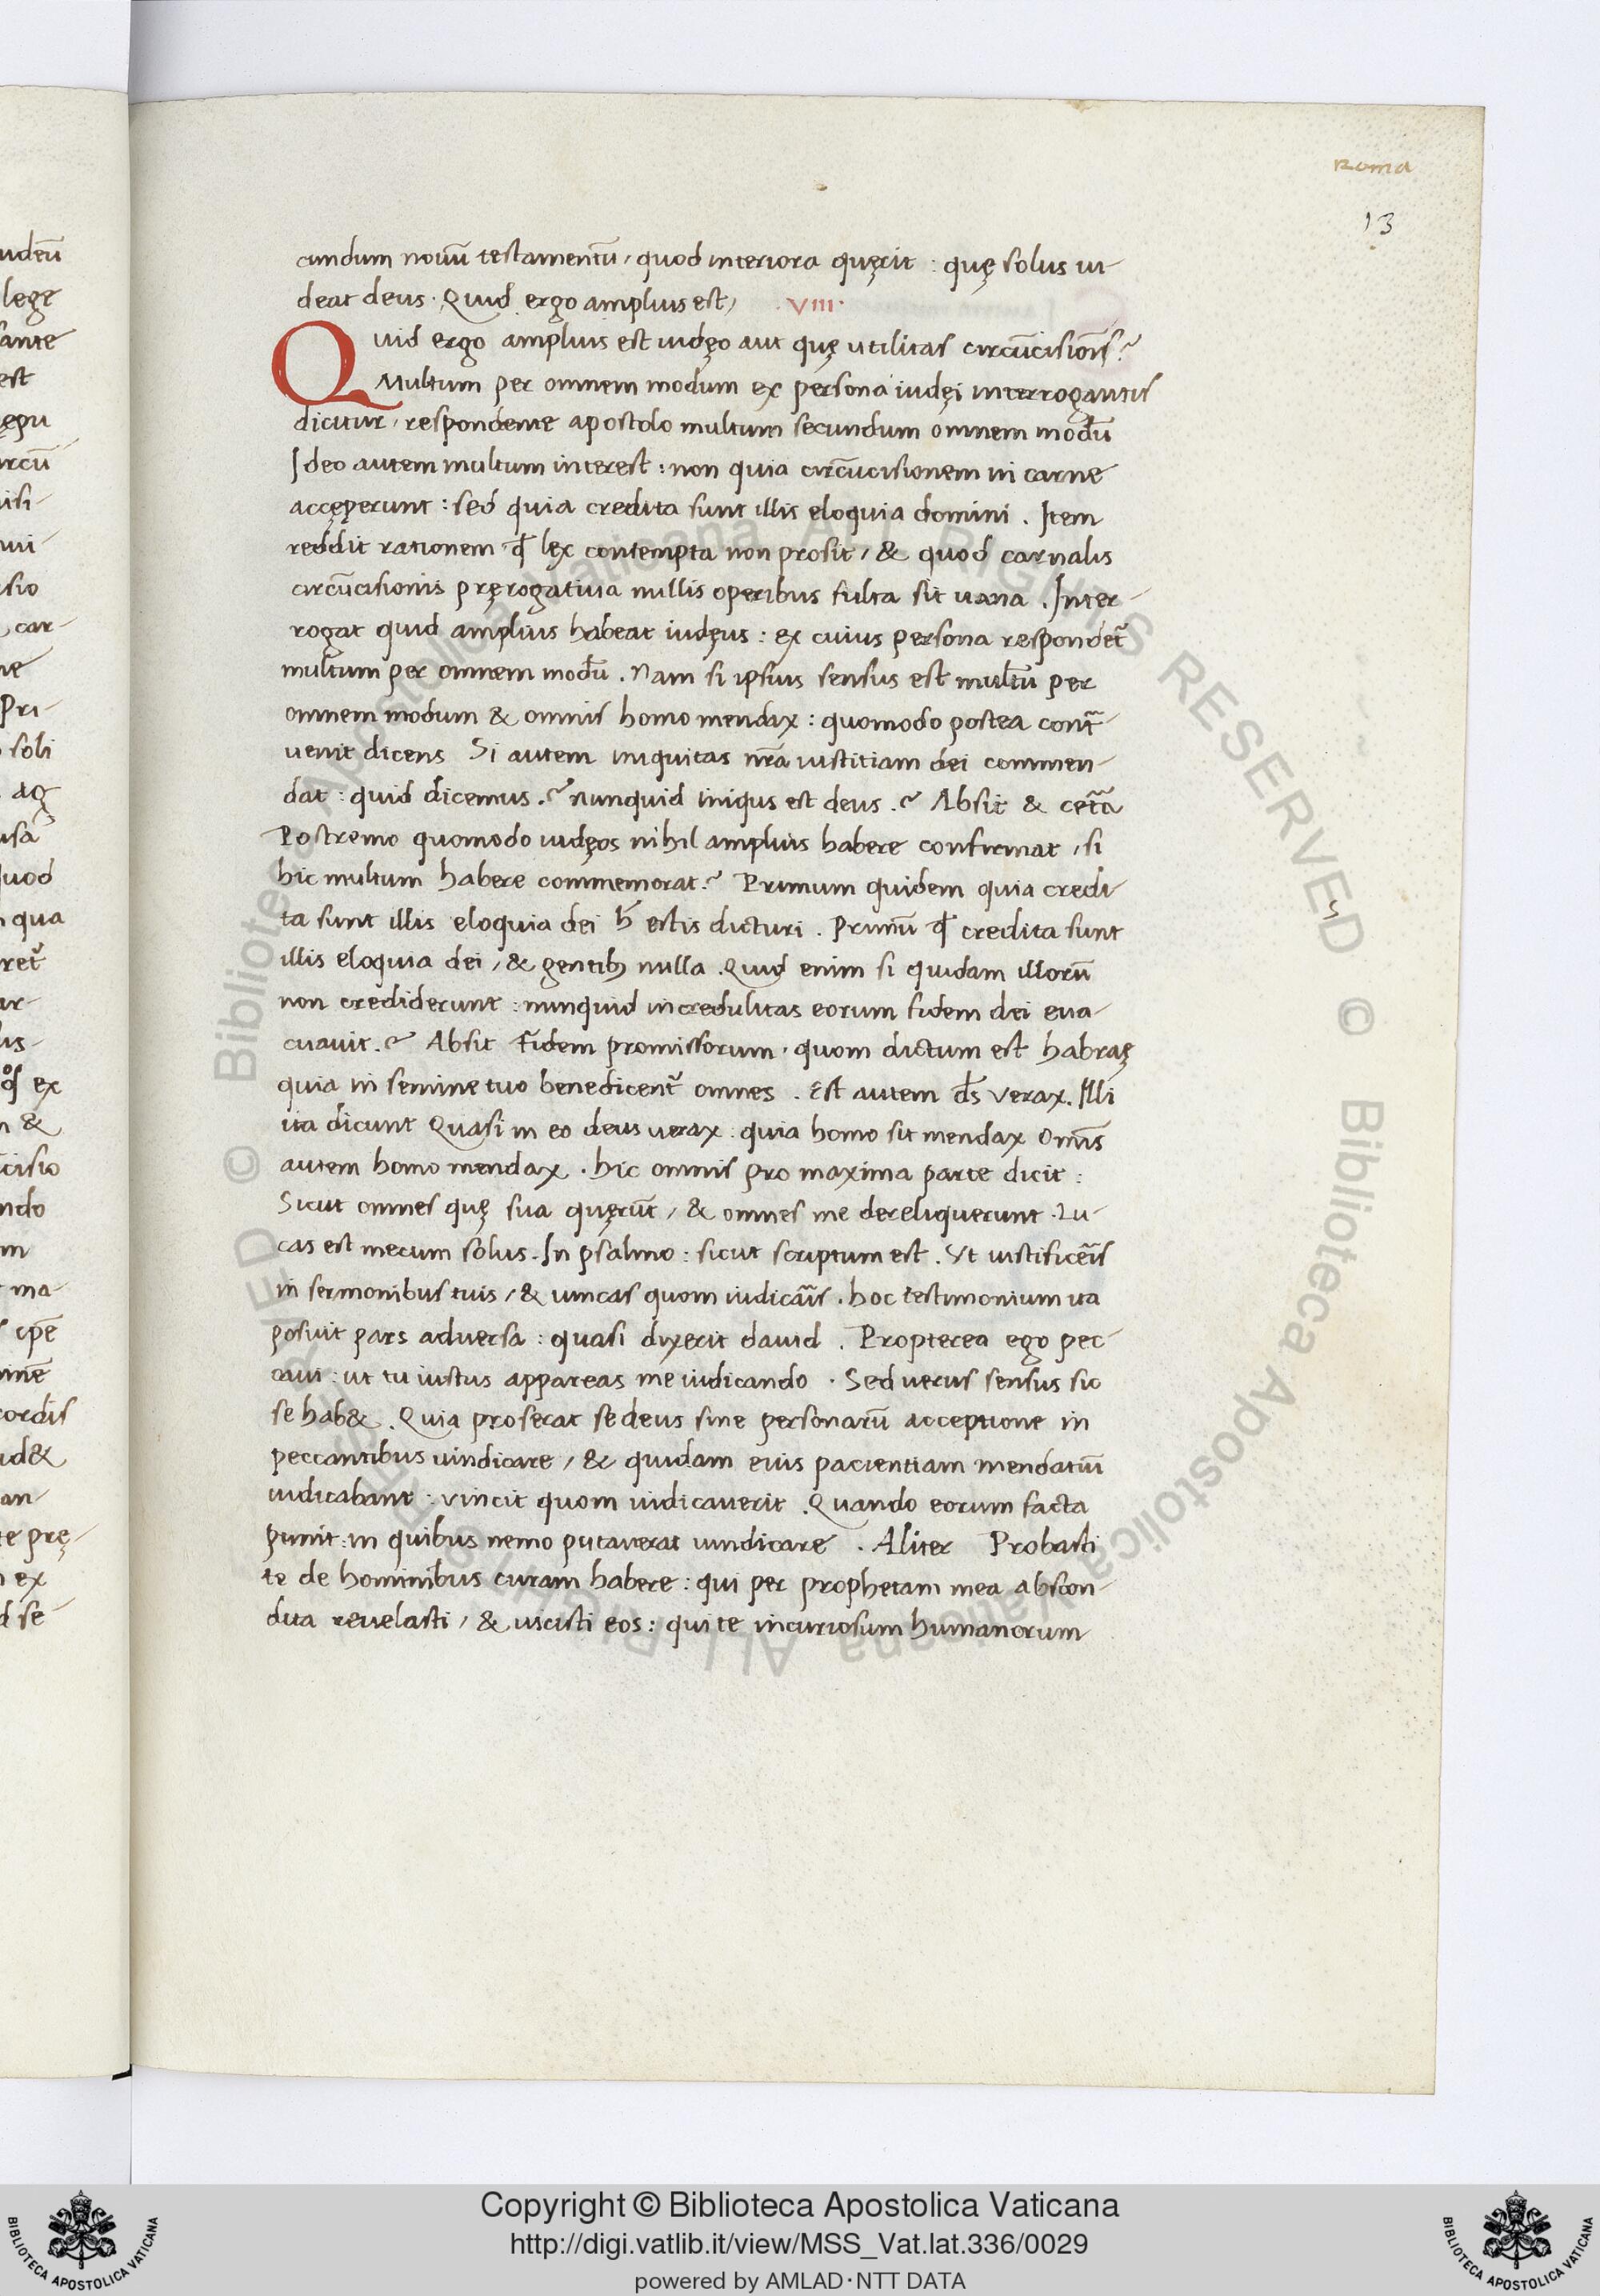 Roma
13
cundum nouũ testamentũ, quod interiora quęrit : quę solus ui-
deat deus. Quid ergo amplius est, VIII.
Quid ergo amplius est iudęo aut quę utilitas circũcisiõis?
Multum per omnem modum ex persona iudęi interrogantis
dicitur, respondente apostolo multum secundum omnem modũ
Ideo autem multum interest : non quia circũcisionem in carne
accęperunt : sed quia credita sunt illis eloquia domini. Item
reddit rationem ꝙ lex contempta non prosit, & quod carnalis
circũcisionis pręrogatiua nullis operibus fulta sit uana. Inter-
rogat quid amplius habeat iudęus : ex cuius persona respondet̃
multum per omnem modũ. Nam si ipsius sensus est multũ per
omnem modum & omnis homo mendax : quomodo postea cont̃-
uenit dicens Si autem iniquitas nr̃a iustitiam dei commen-
dat : quid dicemus.? nunquid iniqus est deus.? Absit & cet̃a
Postremo quomodo iudęos nihil amplius habere confirmat, si
hic multum habere commemorat? Primum quidem quia credi-
ta sunt illis eloquia dei ħ estis dicturi. Primũ ꝙ credita sunt
illis eloquia dei, & gentibꝫ nulla. Quid enim si quidam illorũ
non crediderunt : nunquid incredulitas eorum fidem dei eua-
cuauit.? Absit Fidem promissorum. quom dictum est habraę
quia in semine tuo benedicent̃ omnes. Est autem d̃s verax. Illi
ita dicunt Quasi in eo deus uerax : quia homo sit mendax Om̃is
autem homo mendax. hic omnis pro maxima parte dicit :
Sicut omnes quę sua quęrũt, & omnes me dereliquerunt. Lu-
cas est mecum solus. In psalmo : sicut scriptum est. Vt iustificẽis
in sermonibus tuis, & uincas quom iudicãis. hoc testimonium ita
posuit pars adversa : quasi dixerit dauid. Propterea ego pec-
caui : ut tu iustus appareas me iudicando. Sed uerus sensus sic
se hab&. Quia proferat se deus sine personarũ acceptione in
peccantibus uindicare, & quidam eius pacientiam mendatiũ
iudicabant : vincit quom iudicaverit. Quando eorum facta
punit : in quibus nemo putaverat uindicare. Aliter Probasti
te de hominibus curam habere : qui per prophetam mea abscon-
dita reuelasti, & uicisti eos : qui te incuriosum humanorum
Copyright © Biblioteca Apostolica Vaticana
http://digi.vatlib.it/view/MSS_Vat.lat.336/0029
powered by AMLAD·NTT DATA